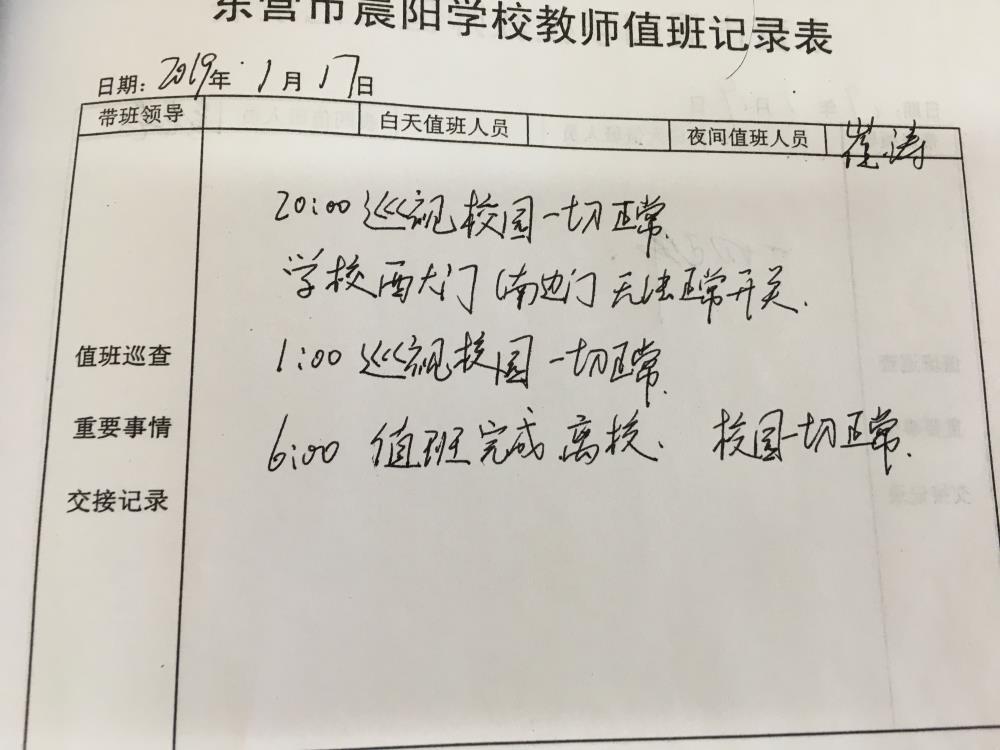 东营市晨阳学校教师值班记录表
日期: 2019年 1月 17日
带班领导 白天值班人员 夜间值班人员 崔涛
20:00 巡视校园一切正常.
学校西大门(南边门无法正常开关.
值班巡查 1:00 巡视校园 一切正常.
重要事情 6:00 值班完成离校. 校园一切正常.
交接记录